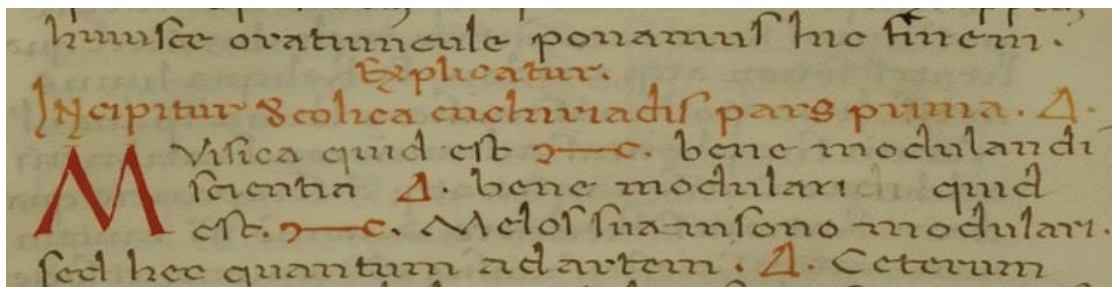 huiusce oratiuncule ponamus hic finem.
Explicatur.
Incipitur Scolica enchiriadis pars prima. Δ.
Musica quid est . bene modulandi
scientia Δ. bene modulari quid
est. . Melos suauisono modulari.
sed hec quantum ad artem. Δ. Ceterum